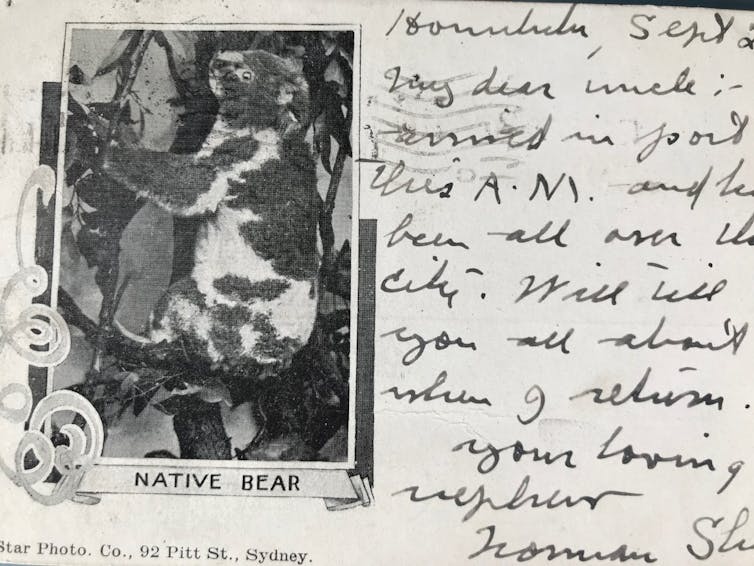 NATIVE BEAR
Star Photo. Co., 92 Pitt St., Sydney.
Honolulu, Sept
My dear uncle :-
arrived in port
this A.M. and
been all over
city. Will tell
you all about
when I return.
your loving
nephew
Norman